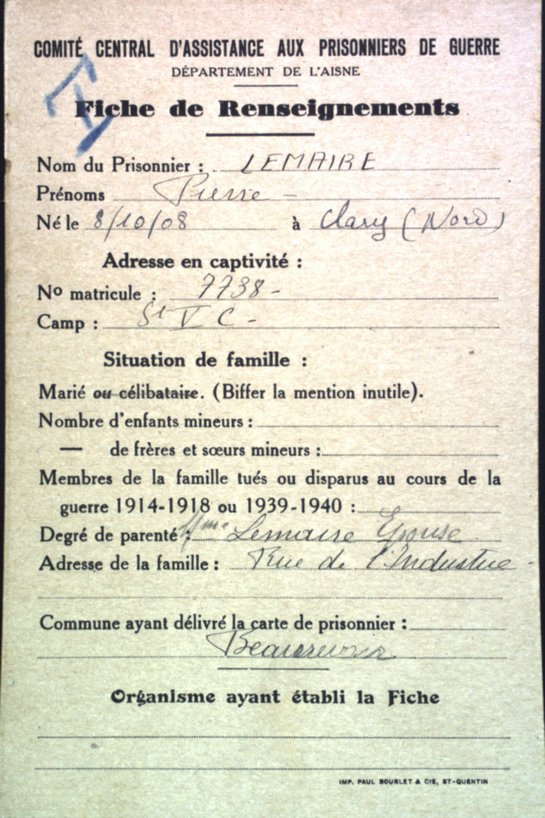 COMITÉ CENTRAL D'ASSISTANCE AUX PRISONNIERS DE GUERRE
DÉPARTEMENT DE L'AISNE
Fiche de Renseignements
Nom du Prisonnier : LEMAIRE
Prénoms Pierre -
Né le 8/10/08 à Clary (Nord)
Adresse en captivité :
No matricule : 7738 -
Camp : St V C -
Situation de famille :
Marié ou célibataire. (Biffer la mention inutile).
Nombre d'enfants mineurs :
— de frères et sœurs mineurs :
Membres de la famille tués ou disparus au cours de la
guerre 1914-1918 ou 1939-1940 :
Degré de parenté : Mme Lemaire Epouse
Adresse de la famille : Rue de l'Industrie -
Commune ayant délivré la carte de prisonnier :
Beaurevoir
Organisme ayant établi la Fiche
IMP. PAUL BOURLET & CIE, ST-QUENTIN